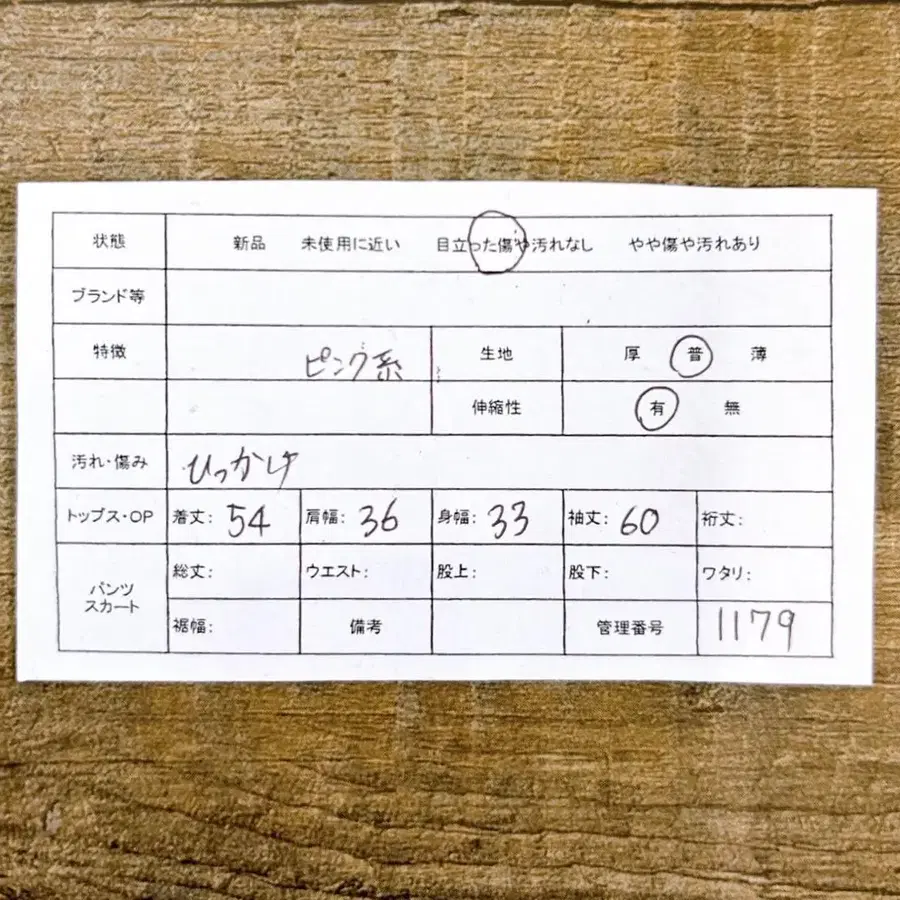 状態 新品 未使用に近い 目立った傷や汚れなし やや傷や汚れあり
ブランド等
特徴 ピンク系 生地 厚 普 薄
伸縮性 有 無
汚れ・傷み ひっかけ
トップス・OP 着丈: 54 肩幅: 36 身幅: 33 袖丈: 60 裄丈:
パンツ スカート 総丈: ウエスト: 股上: 股下: ワタリ:
裾幅: 備考 管理番号 1179